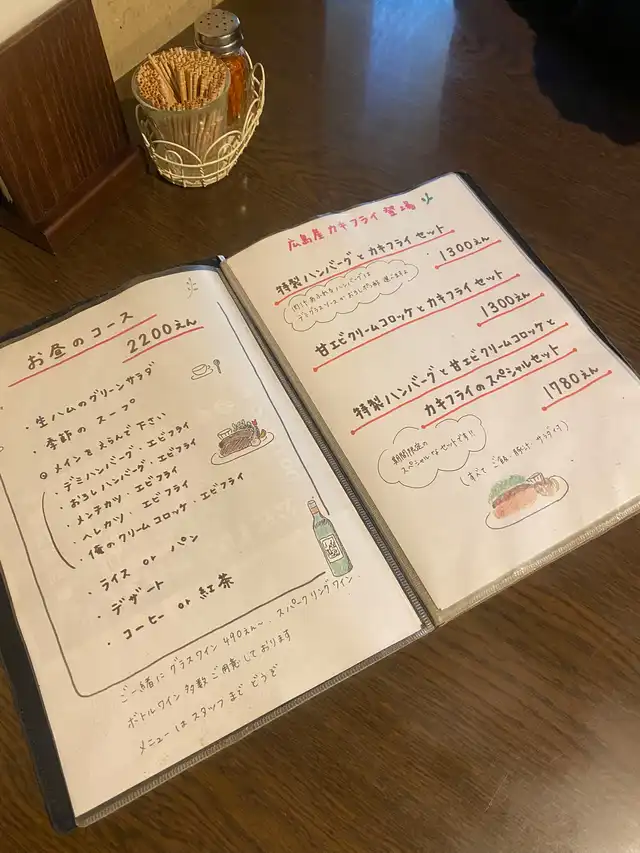 お昼のコース
2200えん
・生ハムのグリーンサラダ
・季節の スープ
◎メインをえらんで下さい
・デミハンバーグ・エビフライ
・おろしハンバーグ・エビフライ
・メンチカツ・エビフライ
・ヘレカツ・エビフライ
・俺のクリームコロッケ・エビフライ
・ライス or パン
・デザート
・コーヒー or 紅茶
ご一緒に グラスワイン 490えん〜 スパークリングワイン
ボトルワイン多数ご用意しております
メニューはスタッフまでどうぞ
広島産 カキフライ 登場
特製ハンバーグとカキフライ セット
1300えん
甘エビクリームコロッケとカキフライ セット
1300えん
特製ハンバーグと甘エビクリームコロッケと
カキフライのスペシャルセット
1780えん
期間限定の
スペシャルなセットです!!
(すべて ご飯、豚汁、サラダ付)